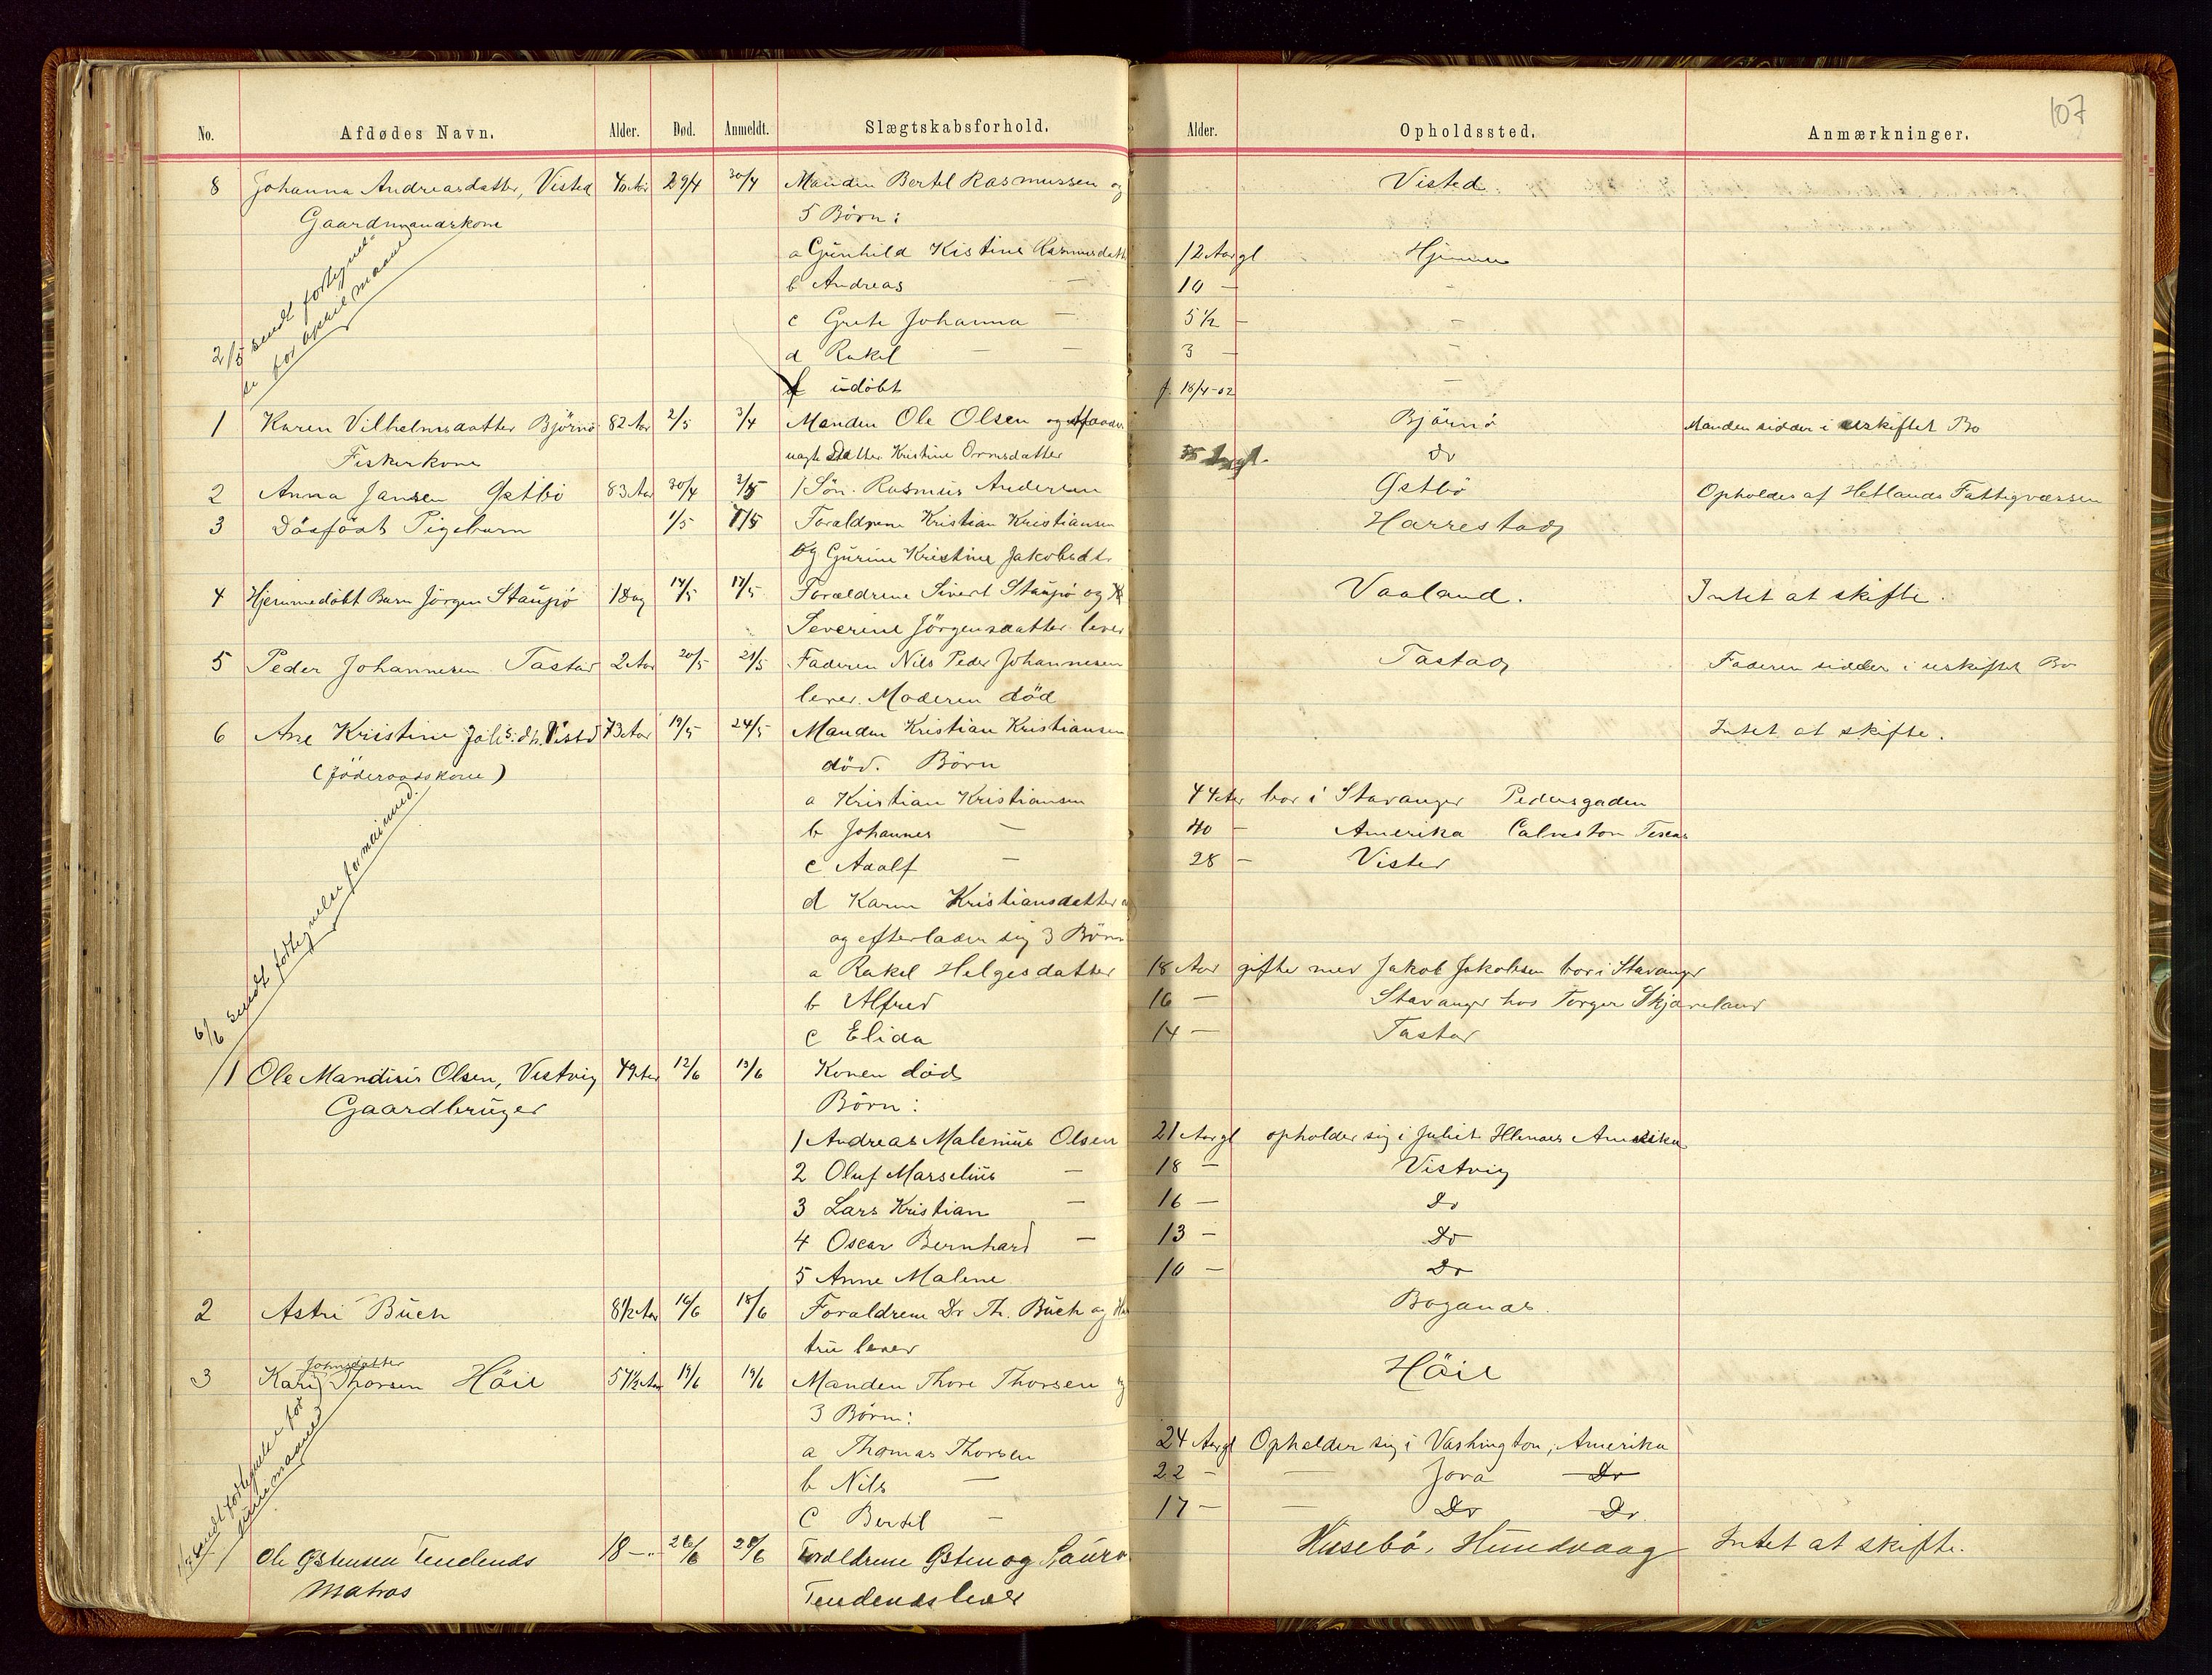 107
No. Afdødes Navn. Alder. Død. Anmeldt. Slægtskabsforhold. Alder. Opholdssted. Anmærkninger.
8 Johanna Andreasdatter, Visted 40 Aar 29/4 30/4 Manden Bertel Rasmussen og Visted
Gaardmandskone 5 Börn:
a Gunhild Kistine Rasmusdatt 12 Aar gl Hjemme
b Andreas — 10 — -
c Grete Johanna — 5 1/2 — —
d Rakel — — 3 — —
f udöbt f. 18/4-02 —
2/5 sendt fortegnel-
se for april maaned
1 Karen Vilhelmsdatter Björnö 82 Aar 2/5 3/4 Manden Ole Olsen og Björnö Manden sidder i uskiftet Bo
Fiskerkone Datter Kristine Ormsdatter do
2 Anna Jansen Østbö 83 Aar 30/4 3/5 1 Sön. Rasmus Andersen Østbö Opholdes af Hetlands Fattigvæssen
3 Dödfödt Pigebarn 1/5 7/5 Foraldrene Kristian Kristiansen Harrestad
og Gurine Kristine Jakobsdt.
4 Hjemmedöbt Barn Jörgen Staupö 1 Dag 14/5 17/5 Forældrene Sivert Staupö og Vaaland. Intet at skifte.
Severine Jörgensdatter lever
5 Peder Johannesen Tastad 2 Aar 20/5 21/5 Faderen Nils Peder Johannesen Tastad Faderen sidder i uskiftet Bo
lever. Moderen död
6 Ane Kristine Visted 73 Aar 19/5 24/5 Manden Kristian Kristiansen Intet at skifte.
(Föderaadskone) död. Börn
a Kristian Kristiansen 44 Aar bor i Stavanger Pedersgaden
b Johannes — 40 — Amerika Texas
c Adolf — 28 — Visted
d Karen Kristiansdatter
og efterlader sig 3 Börn
a Rakel Helgesdatter 18 Aar gifter med Jakob Jakobsen bor i Stavanger
b Alfred 16 — Stavanger hos Torger Skjæveland
c Elida 14 — Tastad
6/6 sendt fortegnelse for mai mnd.
1 Ole Mandius Olsen, Vestvig 49 Aar 12/6 13/6 Konen död
Gaardbruger Börn:
1 Andreas Malenius Olsen 21 Aar gl opholder sig i Amerika
2 Oluf Marselius — 18 — Vistvig
3 Lars Kristian — 16 — Do
4 Oscar Bernhard — 13 — Do
5 Anne Malene 10 — Do
2 Astri Buch 8 1/2 Aar 16/6 18/6 Foraldrene Dr Th. Buch og Hu Boganæs.
tru lever
Johnsdatter
3 Kari Thorsen Höie 57 1/2 Aar 19/6 19/6 Manden Thore Thorsen og Höie
3 Börn:
a Thomas Thorsen 24 Aar gl Opholder sig i Vashington, Amerika
b Nils — 22 — — Jova Do
C Bertil — 17 — — Do Do
sendt fortegnelse for
juni maaned
1 Ole Østensen Tendenes 18 — 26/6 28/6 Foreldrene Østen og Laura Husebö, Hundvaag Intet at skifte.
Matros Tendenes lever